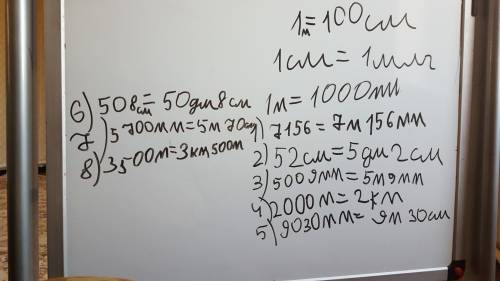 1м=100см
1см=1млг
1м=1000мм
1) 7156=7м 156мм
2) 52см=5дм2см
3) 5009мм=5м9мм
4) 2000м=2км
5) 9030мм=9м 30см
6) 508см=50дм8см
7) 5700мм=5м70см
8) 3500м=3км500м